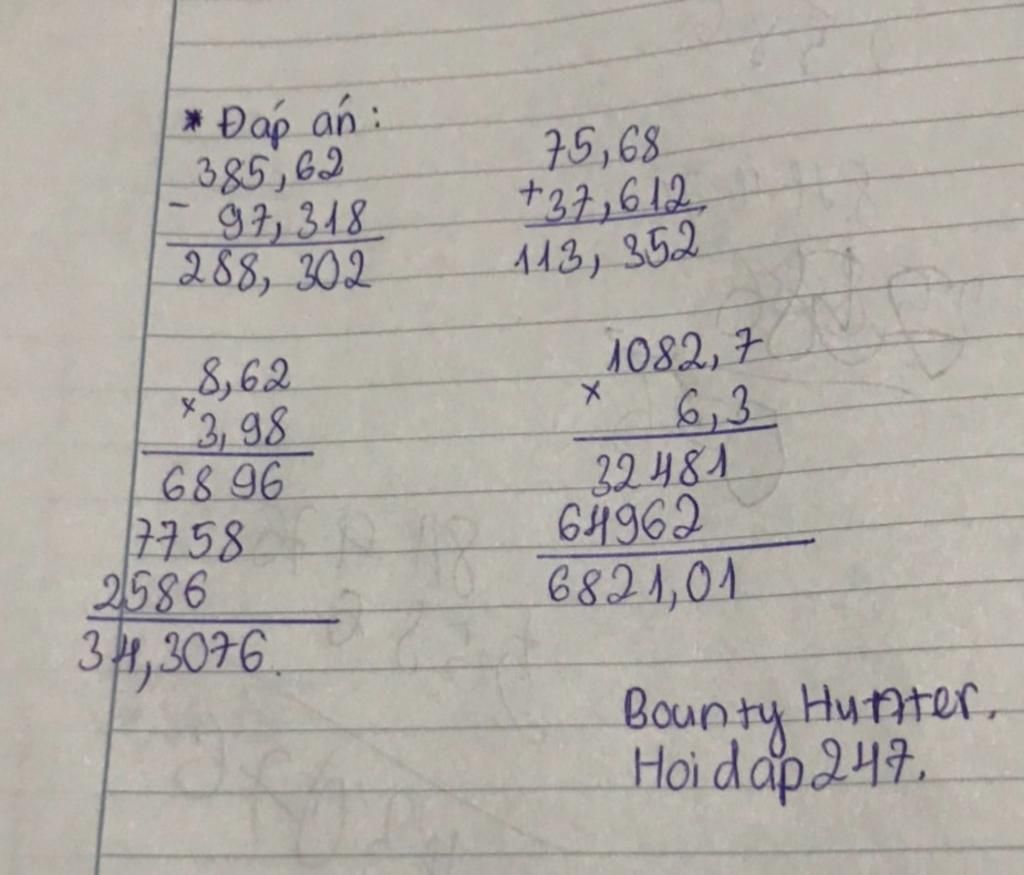 * Đáp án:
385,62
- 97,318
288,302
75,68
+ 37,612
113,352
8,62
x 3,98
6896
7758
2586
34,3076.
1082,7
x 6,3
32481
64962
6821,01
Bounty Hunter.
Hoidap247.